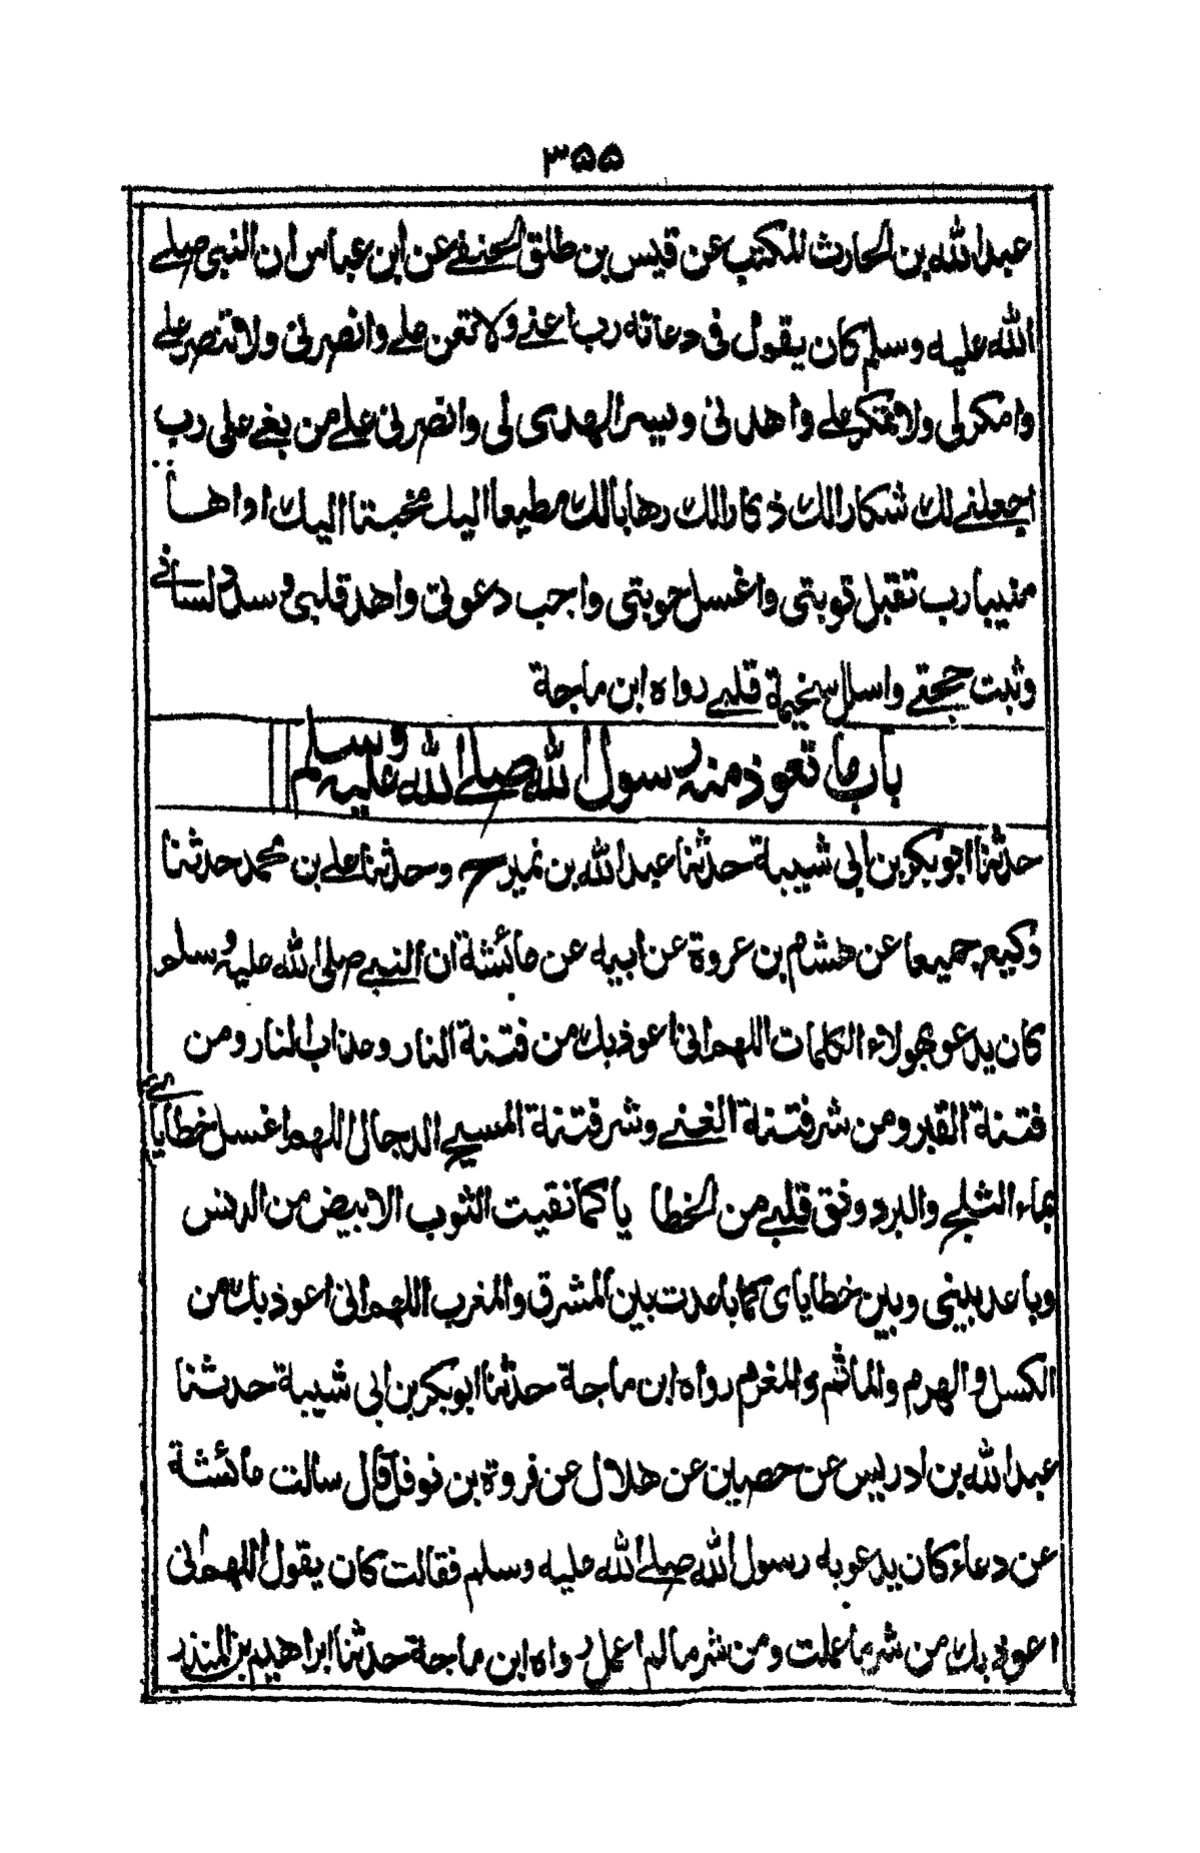 ۳۵۵
عبد الله بن الحارث المكتب عن قيس بن طلق الحنفي عن ابن عباس ان النبي صلى
الله عليه وسلم كان يقول في دعائه رب اعني ولا تعن علي وانصرني ولا تنصر علي
وامكر لي ولا تمكر علي واهدني ويسر الهدى لي وانصرني علي من بغي علي رب
اجعلني لك شكارا لك ذكارا لك رهابا لك مطيعا اليك مخبتا اليك اواها
منيبا رب تقبل توبتي واغسل حوبتي واجب دعوتي واهد قلبي وسدد لساني
وثبت حجتي واسلل سخيمة قلبي رواه ابن ماجة
باب ما تعوذ منه رسول الله صلى الله عليه وسلم
حدثنا ابو بكر بن ابي شيبة حدثنا عبد الله بن نمير ح وحدثنا علي بن محمد حدثنا
وكيع جميعا عن هشام بن عروة عن ابيه عن عائشة ان النبي صلى الله عليه وسلم
كان يدعو بهولاء الكلمات اللهم اني اعوذ بك من فتنة النار وعذاب النار ومن
فتنة القبر ومن شر فتنة الغني وشر فتنة المسيح الدجال اللهم اغسل خطاياي
بماء الثلج والبرد ونق قلبي من الخطايا كما نقيت الثوب الابيض من الدنس
وباعد بيني وبين خطاياى كما باعدت بين المشرق والمغرب اللهم اني اعوذ بك من
الكسل والهرم والماثم والمغرم رواه ابن ماجة حدثنا ابو بكر بن ابي شيبة حدثنا
عبد الله بن ادريس عن حصين عن هلال عن فروة بن نوفل قال سالت عائشة
عن دعاء كان يدعو به رسول الله صلى الله عليه وسلم فقالت كان يقول اللهم اني
اعوذ بك من شر ما عملت ومن شر ما لم اعمل رواه ابن ماجة حدثنا ابراهيم بن المنذر